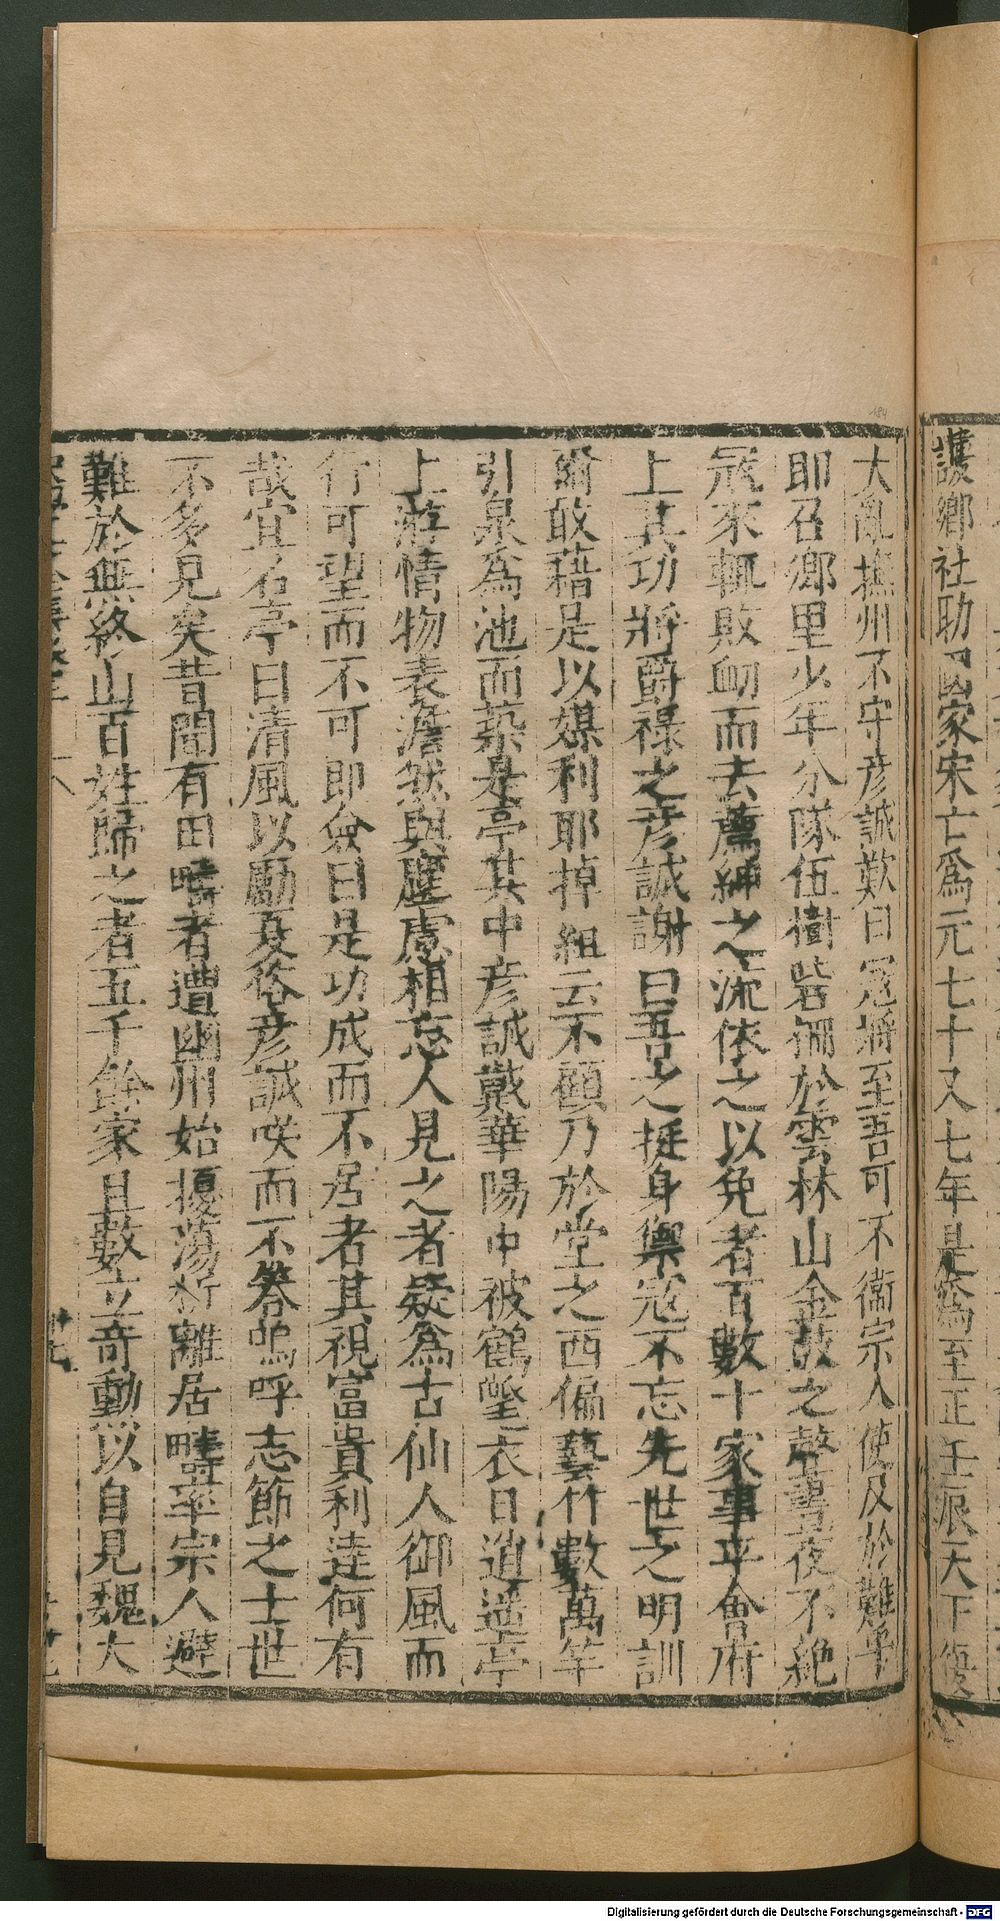 護鄉社助國家宋亡爲元七十又七年是爲至正壬辰天下復
大亂撫州不守彦誠歎曰冦將至吾可不衞宗人使及於難乎
即召鄉里少年分隊伍樹砦柵於雲林山金鼓之聲晝夜不絶
冦來輒敗衂而去薦紳之流依之以免者百數十家事平會府
上其功將爵禄之彦誠謝曰吾之挺身禦冦不忘先世之明訓
爾敢藉是以媒利耶掉組云不顧乃於堂之西偏藝竹數萬竿
引泉爲池而築是亭其中彦誠戴華陽巾被鶴氅衣日逍遥亭
上游情物表澹然與塵慮相忘人見之者疑爲古仙人御風而
行可望而不可即僉曰是功成而不居者其視富貴利達何有
哉宜名亭曰清風以勵夏俗彦誠咲而不答嗚呼志節之士世
不多見矣昔聞有田疇者遭幽州始擾蕩析離居疇率宗人避
難於無終山百姓歸之者五千餘家且數立奇動以自見魏大
184
Digitalisierung gefördert durch die Deutsche Forschungsgemeinschaft - DFG